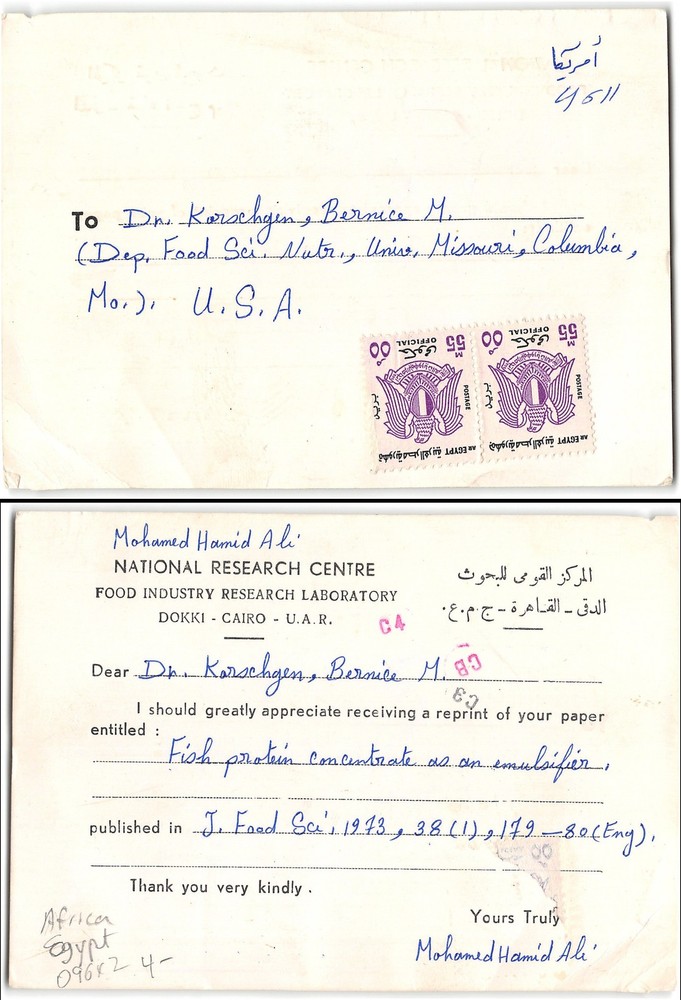 أمريكا
To Dr. Korschgen, Bernice M.
(Dep. Food Sci. Nutr., Univ. Missouri, Columbia,
Mo.). U.S.A.
٥٥ حكومى OFFICIAL 55 M
بريد POSTAGE
جمهورية مصر العربية AR EGYPT
٥٥ حكومى OFFICIAL 55 M
بريد POSTAGE
جمهورية مصر العربية AR EGYPT
Mohamed Hamid Ali
NATIONAL RESEARCH CENTRE
المركز القومى للبحوث
FOOD INDUSTRY RESEARCH LABORATORY
الدقى - القاهرة - ج.م.ع.
DOKKI - CAIRO - U.A.R.
C4
Dear Dr. Korschgen, Bernice M.
CB
C3
I should greatly appreciate receiving a reprint of your paper
entitled :
Fish protein concentrate as an emulsifier.
published in J. Food Sci., 1973, 38(1), 179-80(Eng).
Thank you very kindly.
Yours Truly
Mohamed Hamid Ali
Africa
Egypt
096x2 4-